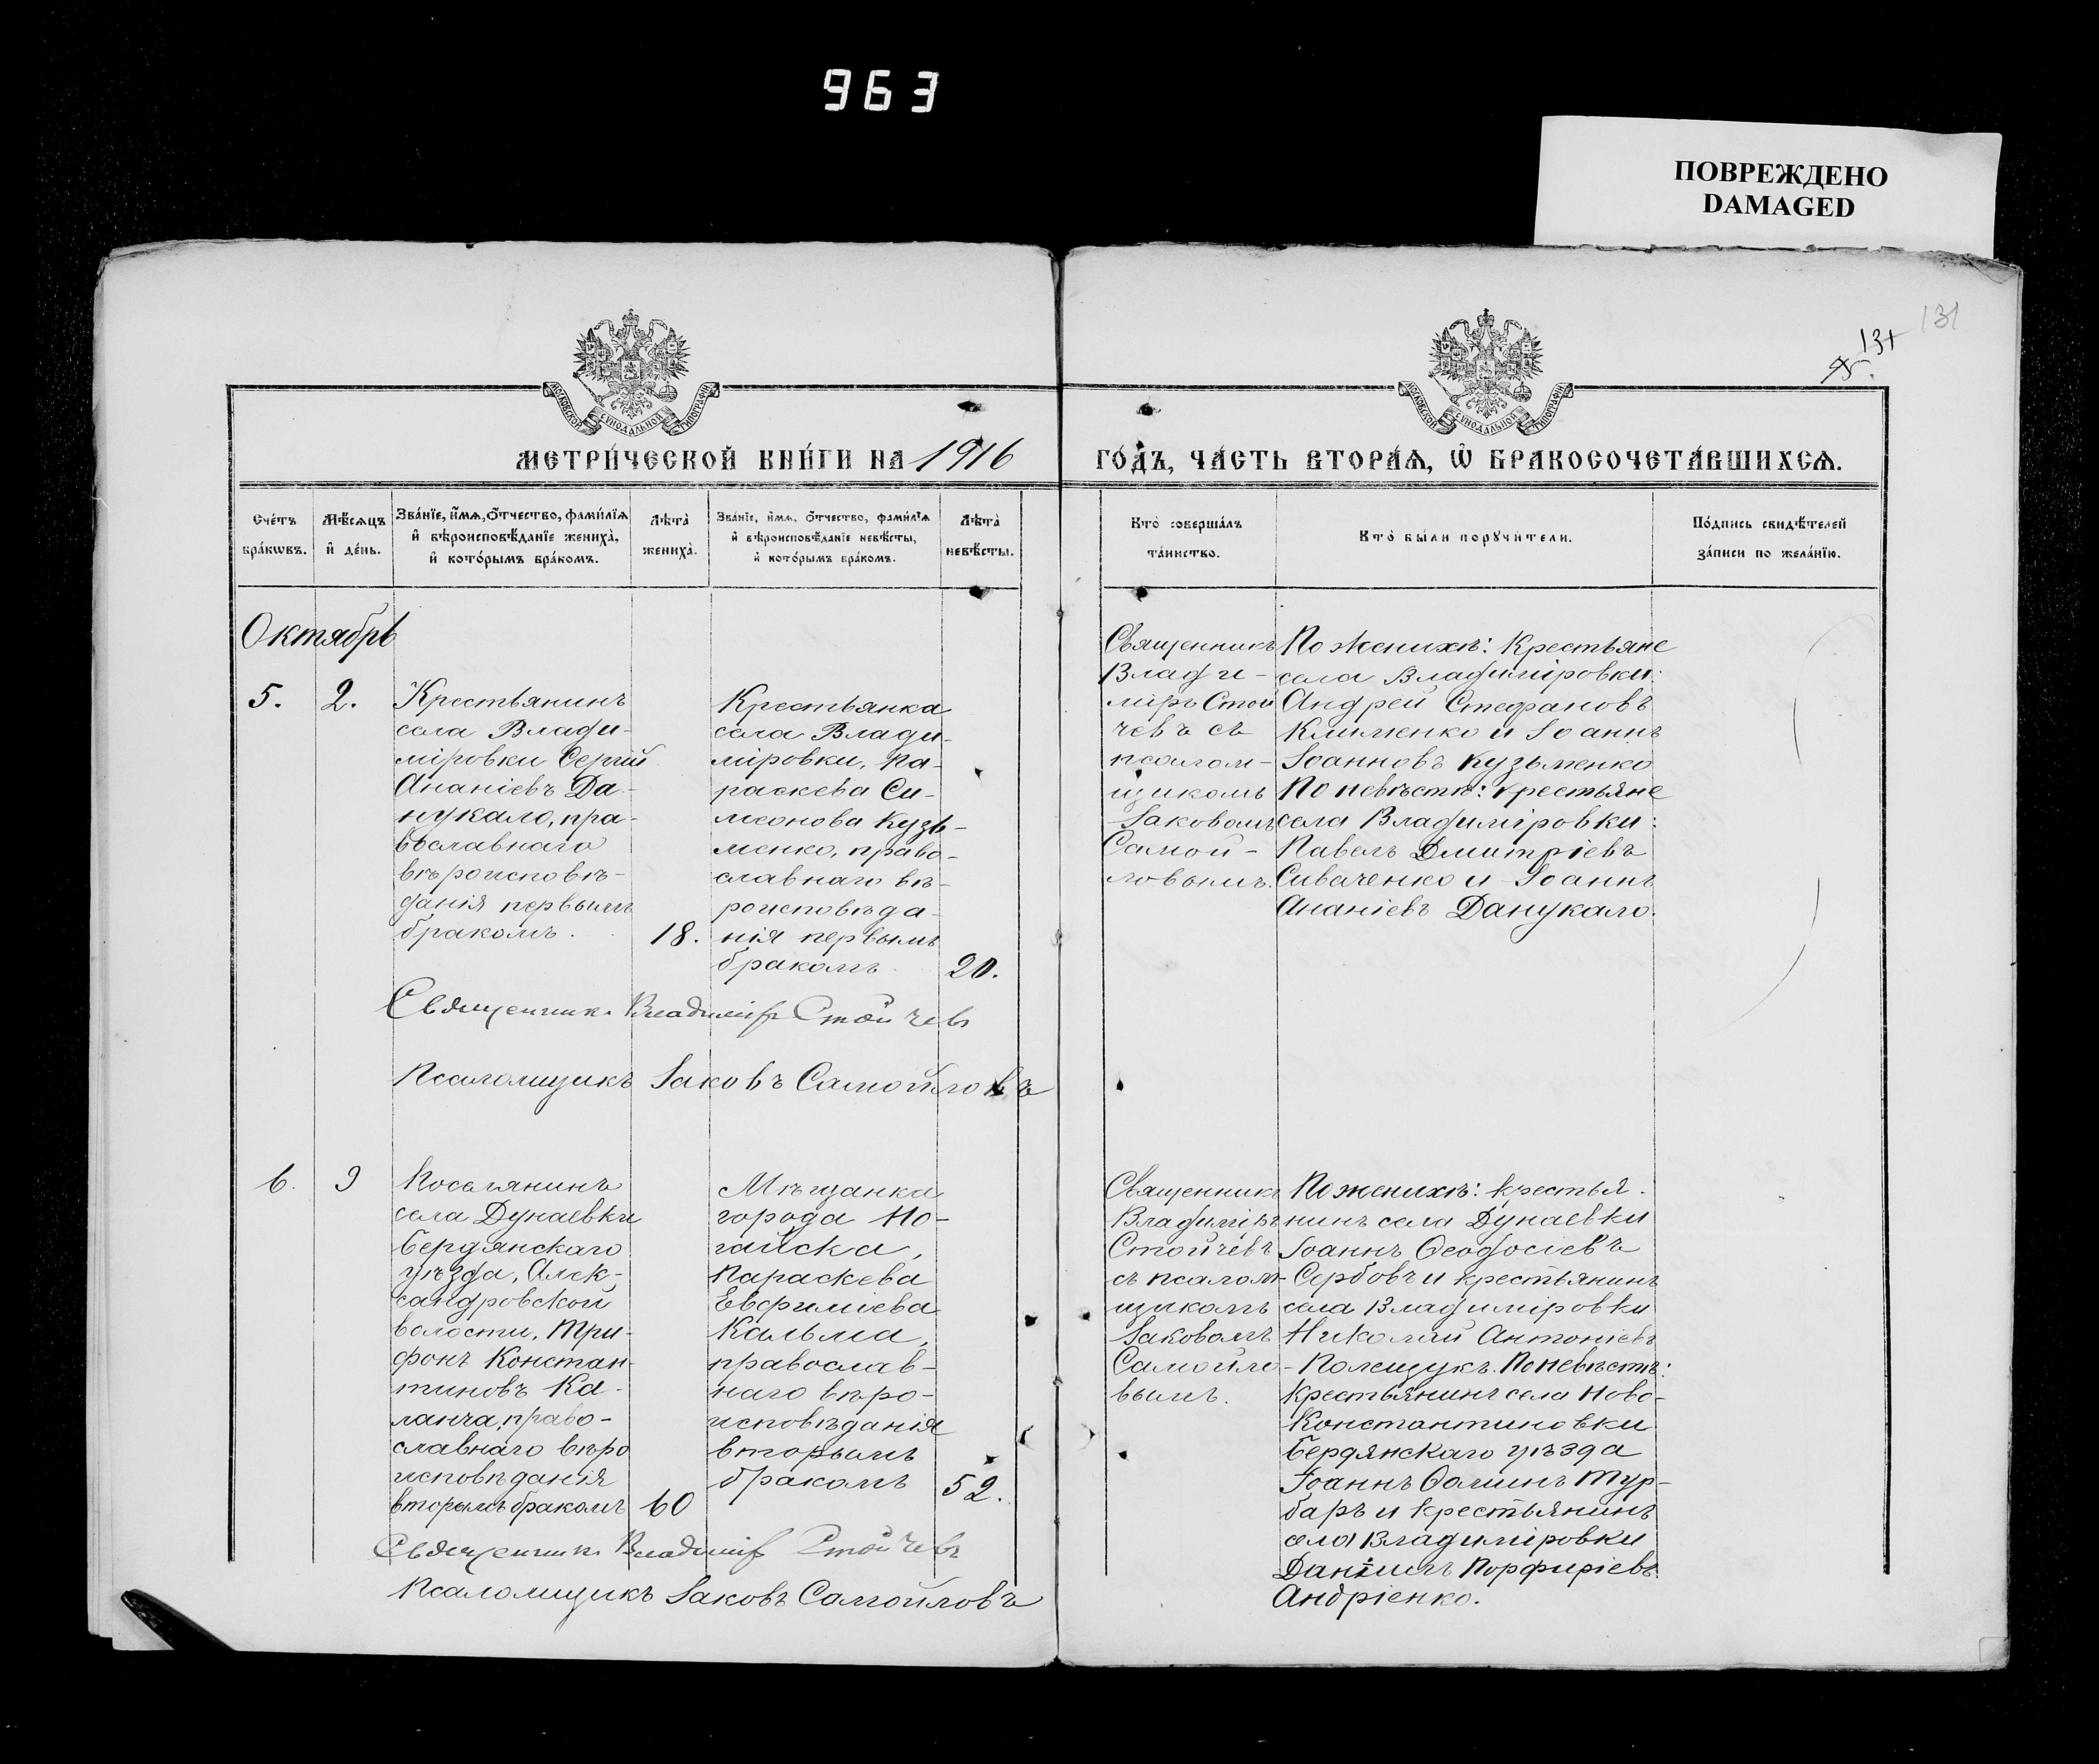 963
ПОВРЕЖДЕНО
DAMAGED
131
131
МОСКОВСКОЙ СѴНОДАЛЬНОЙ ТИПОГРАФІИ
МОСКОВСКОЙ СѴНОДАЛЬНОЙ ТИПОГРАФІИ
МЕТРИ́ЧЕСКОЙ КНИ́ГИ НА 1916
ГО́ДЪ, ЧА́СТЬ ВТОРА́Ѧ, Ѽ БРАКОСОЧЕТА́ВШИХСѦ.
Сче́тъ
бра́кѡвъ.
Мѣ́сѧцъ
и҆ де́нь.
Зва́нїе, и҆́мѧ, ѻ҆́тчество, фами́лїѧ
и҆ вѣроисповѣ́данїе жениха̀,
и҆ кото́рымъ бра́комъ.
Лѣта̀
жениха̀.
Зва́нїе, и҆́мѧ, ѻ҆́тчество, фами́лїѧ
и҆ вѣроисповѣ́данїе невѣ́сты,
и҆ кото́рымъ бра́комъ.
Лѣта̀
невѣ́сты.
Кто̀ соверша́лъ
та́инство.
Кто̀ бы́ли порꙋчи́тели.
По́дпись свидѣ́телей
за́писи по жела́нїю.
Октябрь
5.
2.
Крестьянинъ
села Влади-
міровки Сергій
Ананіевъ Да-
нукало, пра-
вославнаго
вѣроисповѣ-
данія первымъ
бракомъ.
18.
Крестьянка
села Влади-
міровки, Па-
раскева Си-
меонова Кузь-
менко, право-
славнаго вѣ-
роисповѣда-
нія первымъ
бракомъ
20.
Священникъ
Влади-
міръ Стой
чевъ съ
псалом-
щикомъ
Іаковомъ
Самой-
ловымъ.
По женихѣ: Крестьяне
села Владиміровки:
Андрей Стефановъ
Клименко и Іоаннъ
Іоанновъ Кузьменко
По невѣстѣ: крестьяне
села Владиміровки:
Павелъ Дмитріевъ
Сиваченко и Іоаннъ
Ананіевъ Данукало.
Священникъ Владиміръ Стойчевъ
Псаломщикъ Іаковъ Самойловъ
6.
9
Поселянинъ
села Дунаевки
Бердянскаго
уѣзда, Алек-
сандровской
волости, Три-
фонъ Констан-
тиновъ Ка-
ланча, право-
славнаго вѣро
исповѣданія
вторымъ бракомъ
60
Мѣщанка
города Но-
гайска,
Параскева
Евфиміева
Кальма,
православ-
наго вѣро-
исповѣданія
вторымъ
бракомъ
52.
Священникъ
Владиміръ
Стойчевъ
съ псалом-
щикомъ
Іаковомъ
Самойло-
вымъ.
По женихѣ: крестья-
нинъ села Дунаевки
Іоаннъ Ѳеодосіевъ
Сербовъ и крестьянинъ
села Владиміровки
Николай Антоніевъ
Полещукъ. По невѣстѣ:
крестьянинъ села Ново-
Константиновки
Бердянскаго уѣзда
Іоаннъ Ѳоминъ Тур-
баръ и крестьянинъ
села Владиміровки
Даніилъ Порфиріевъ
Андріенко.
Священникъ Владиміръ Стойчевъ
Псаломщикъ Іаковъ Самойловъ